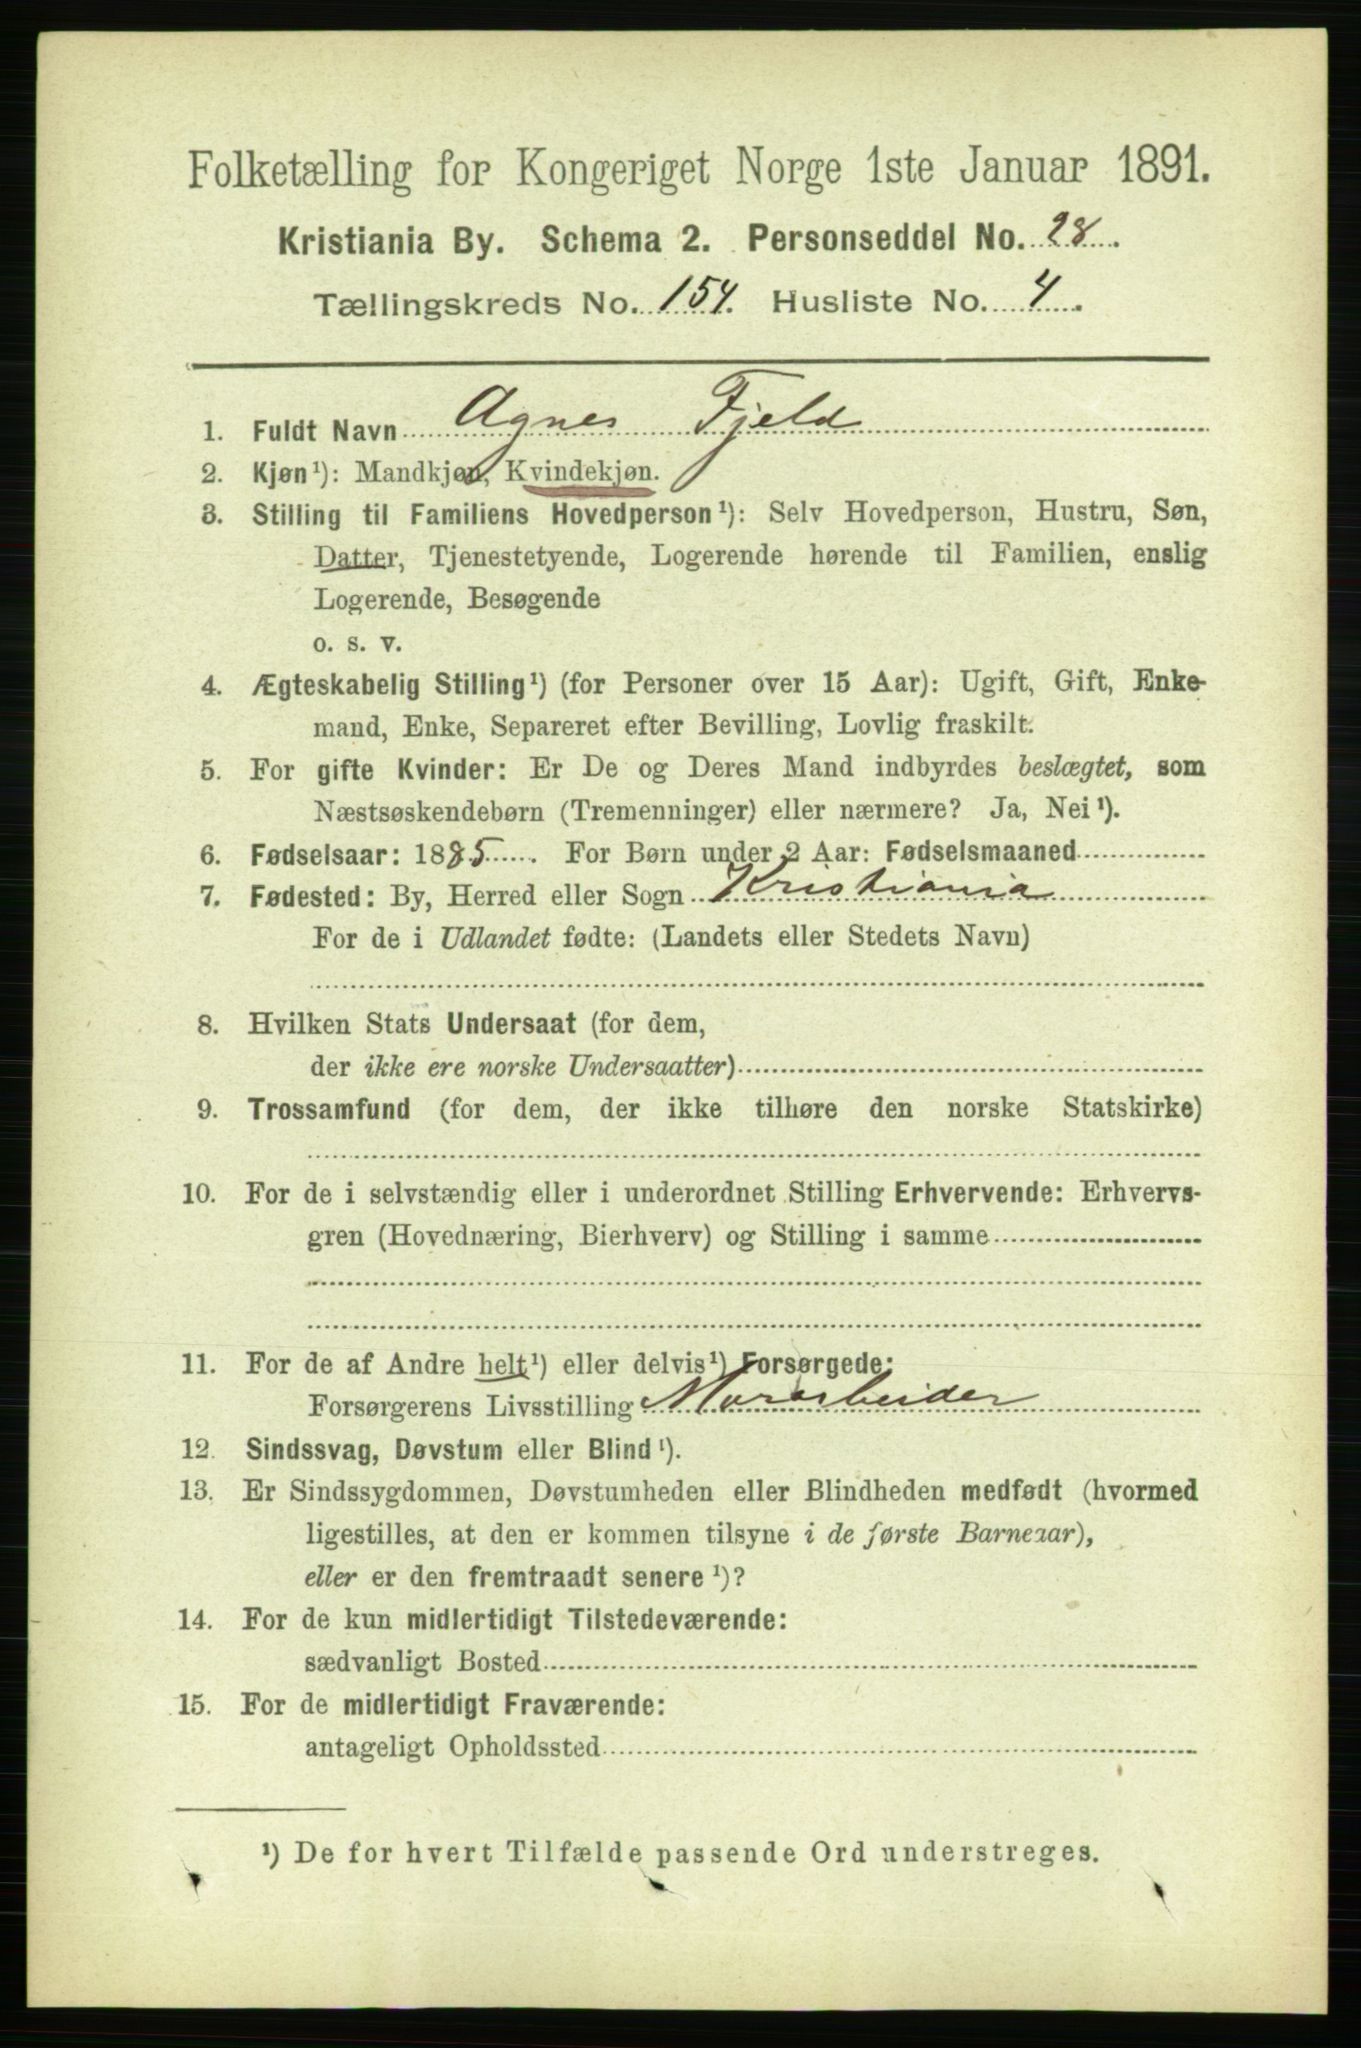 Folketælling for Kongeriget Norge 1ste Januar 1891.
Kristiania By. Schema 2. Personseddel No. 28.
Tællingskreds No. 154. Husliste No. 4.
1. Fuldt Navn Agnes Fjeld
2. Kjøn¹): Mandkjøn, Kvindekjøn.
3. Stilling til Familiens Hovedperson¹): Selv Hovedperson, Hustru, Søn,
Datter, Tjenestetyende, Logerende hørende til Familien, enslig
Logerende, Besøgende
o. s. v.
4. Ægteskabelig Stilling¹) (for Personer over 15 Aar): Ugift, Gift, Enke-
mand, Enke, Separeret efter Bevilling, Lovlig fraskilt.
5. For gifte Kvinder: Er De og Deres Mand indbyrdes beslægtet, som
Næstsøskendebørn (Tremenninger) eller nærmere? Ja, Nei¹).
6. Fødselsaar: 1885. For Børn under 2 Aar: Fødselsmaaned
7. Fødested: By, Herred eller Sogn Kristiania
For de i Udlandet fødte: (Landets eller Stedets Navn)
8. Hvilken Stats Undersaat (for dem,
der ikke ere norske Undersaatter)
9. Trossamfund (for dem, der ikke tilhøre den norske Statskirke)
10. For de i selvstændig eller i underordnet Stilling Erhvervende: Erhvervs-
gren (Hovednæring, Bierhverv) og Stilling i samme
11. For de af Andre helt¹) eller delvis¹) Forsørgede:
Forsørgerens Livsstilling Murarbeider
12. Sindssvag, Døvstum eller Blind¹).
13. Er Sindssygdommen, Døvstumheden eller Blindheden medfødt (hvormed
ligestilles, at den er kommen tilsyne i de første Barneaar),
eller er den fremtraadt senere¹)?
14. For de kun midlertidigt Tilstedeværende:
sædvanligt Bosted
15. For de midlertidigt Fraværende:
antageligt Opholdssted
¹) De for hvert Tilfælde passende Ord understreges.